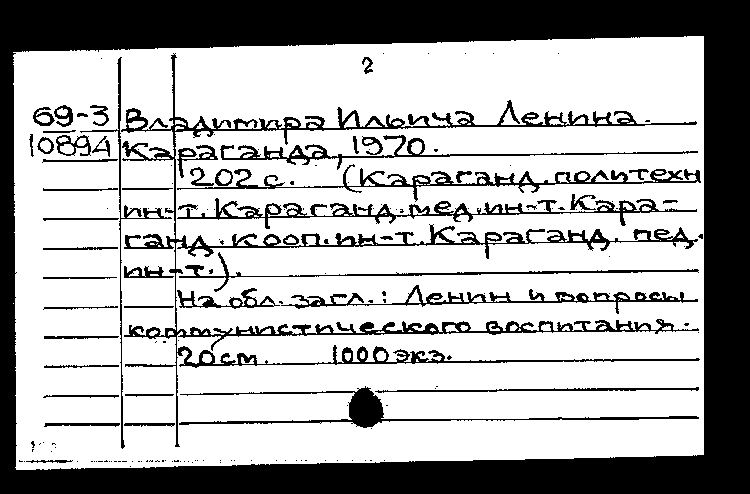 2
69-3 Владимира Ильича Ленина.
10894 Караганда, 1970.
202 с. (Караганд. политехн
ин-т. Караганд. мед. ин-т. Кара-
ганд. кооп. ин-т. Караганд. пед.
ин-т.).
На обл. загл.: Ленин и вопросы
коммунистического воспитания.
20 см. 1000 экз.